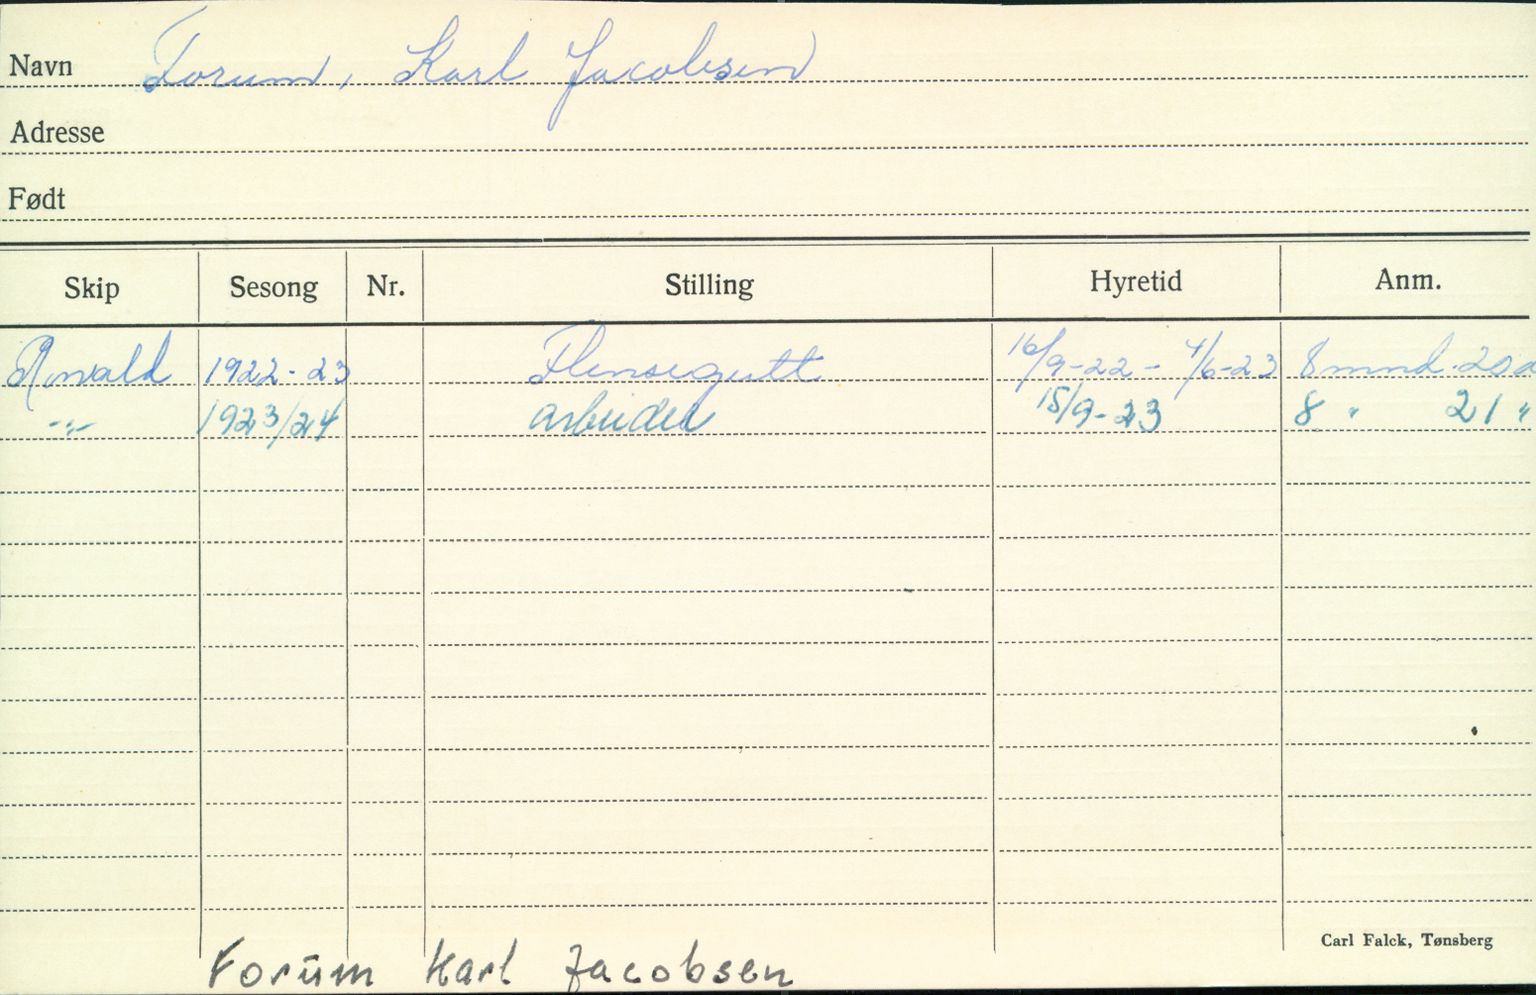 Navn Forum, Karl Jacobsen
Adresse
Født
Skip Sesong Nr. Stilling Hyretid Anm.
Ronald 1922-23 Flensegutt 16/9-22 - 4/6-23 8 mnd. 20 d
-"- 1923/24 arbeider 15/9-23 8 " 21 "
Carl Falck, Tønsberg
Forum Karl Jacobsen